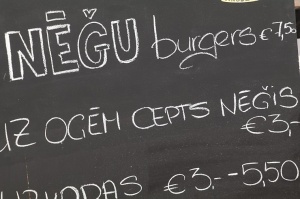 NĒĢU burgers €7,5
UZ OGĒM CEPTS NĒĢIS
€3,-
UZKODAS €3,--5,50